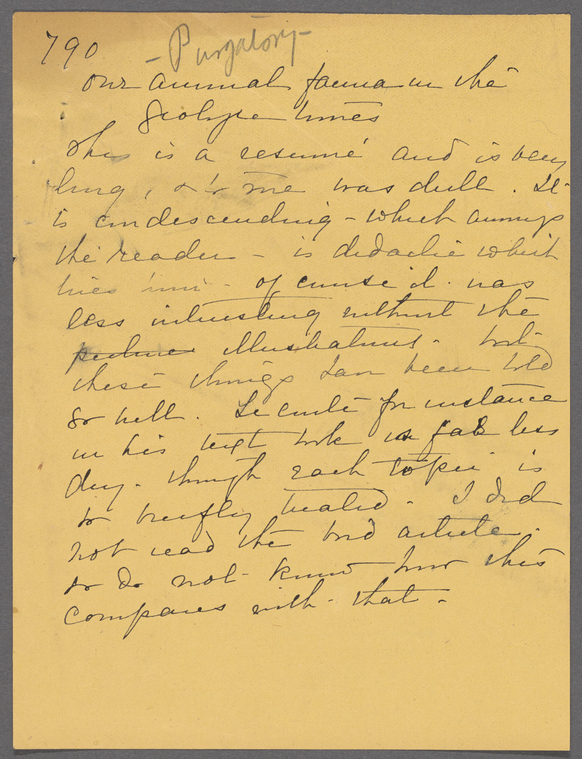 790
- Purgatory -
Our animal fauna in the
times
This is a resumé and is very
long, & to me was dull. It
is condescending - which annoys
the reader - is didactic which
tires him - of course it was
less interesting without the
picture illustrations. but
these things have been told
so well. Le Conte for instance
in his text book is far less
dry. though each topic is
so briefly treated. I did
not read the bird article.
so do not know how this
compares with that.